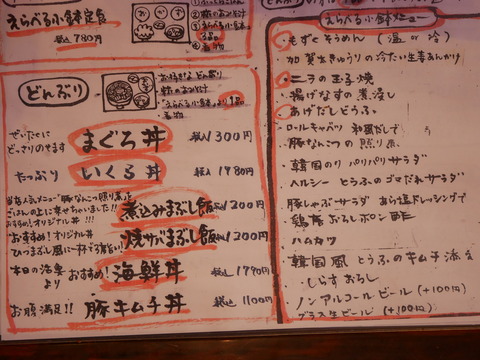 えらべる小鉢定食
税込780円
どんぶり
お好きなどんぶり
豚のおみそ汁
えらべる小鉢より1品
煮物
ぜいたくに
どっさりのせます
まぐろ丼
税込1300円
たっぷり
いくる丼
税込1980円
当店人気メニュー "豚なんこつ照り煮"を
ごはんの上に幸せちゃいました!!
おすすめ!オリジナル丼!!!
煮込みまぶし飯
税込1200円
"おすすめ!オリジナル丼
ひつまぶし風に一杯で3度おいしい!!
焼サバまぶし飯
税込1200円
本日の治楽より
おすすめ!
海鮮丼
税込1790円
お腹満足!!
豚キムチ丼
税込1100円
えらべる小鉢メニュー
もずくそうめん(温or冷)
加賀生きゅうりの冷たい生姜あんかけ
ニラの玉子焼
揚げなすの煮浸し
あげだしどうふ
ロールキャベツ 和風だしで
豚なんこつの照り煮
韓国のりパリパリサラダ
ヘルシーとうふのゴマだれサラダ
豚しゃぶサラダ あら塩ドレッシングで
鶏唐おろしポン酢
ハムカツ
韓国風とうふのキムチ添え
しらすおろし
ノンアルコールビール(+100円)
グラス生ビール(+100円)